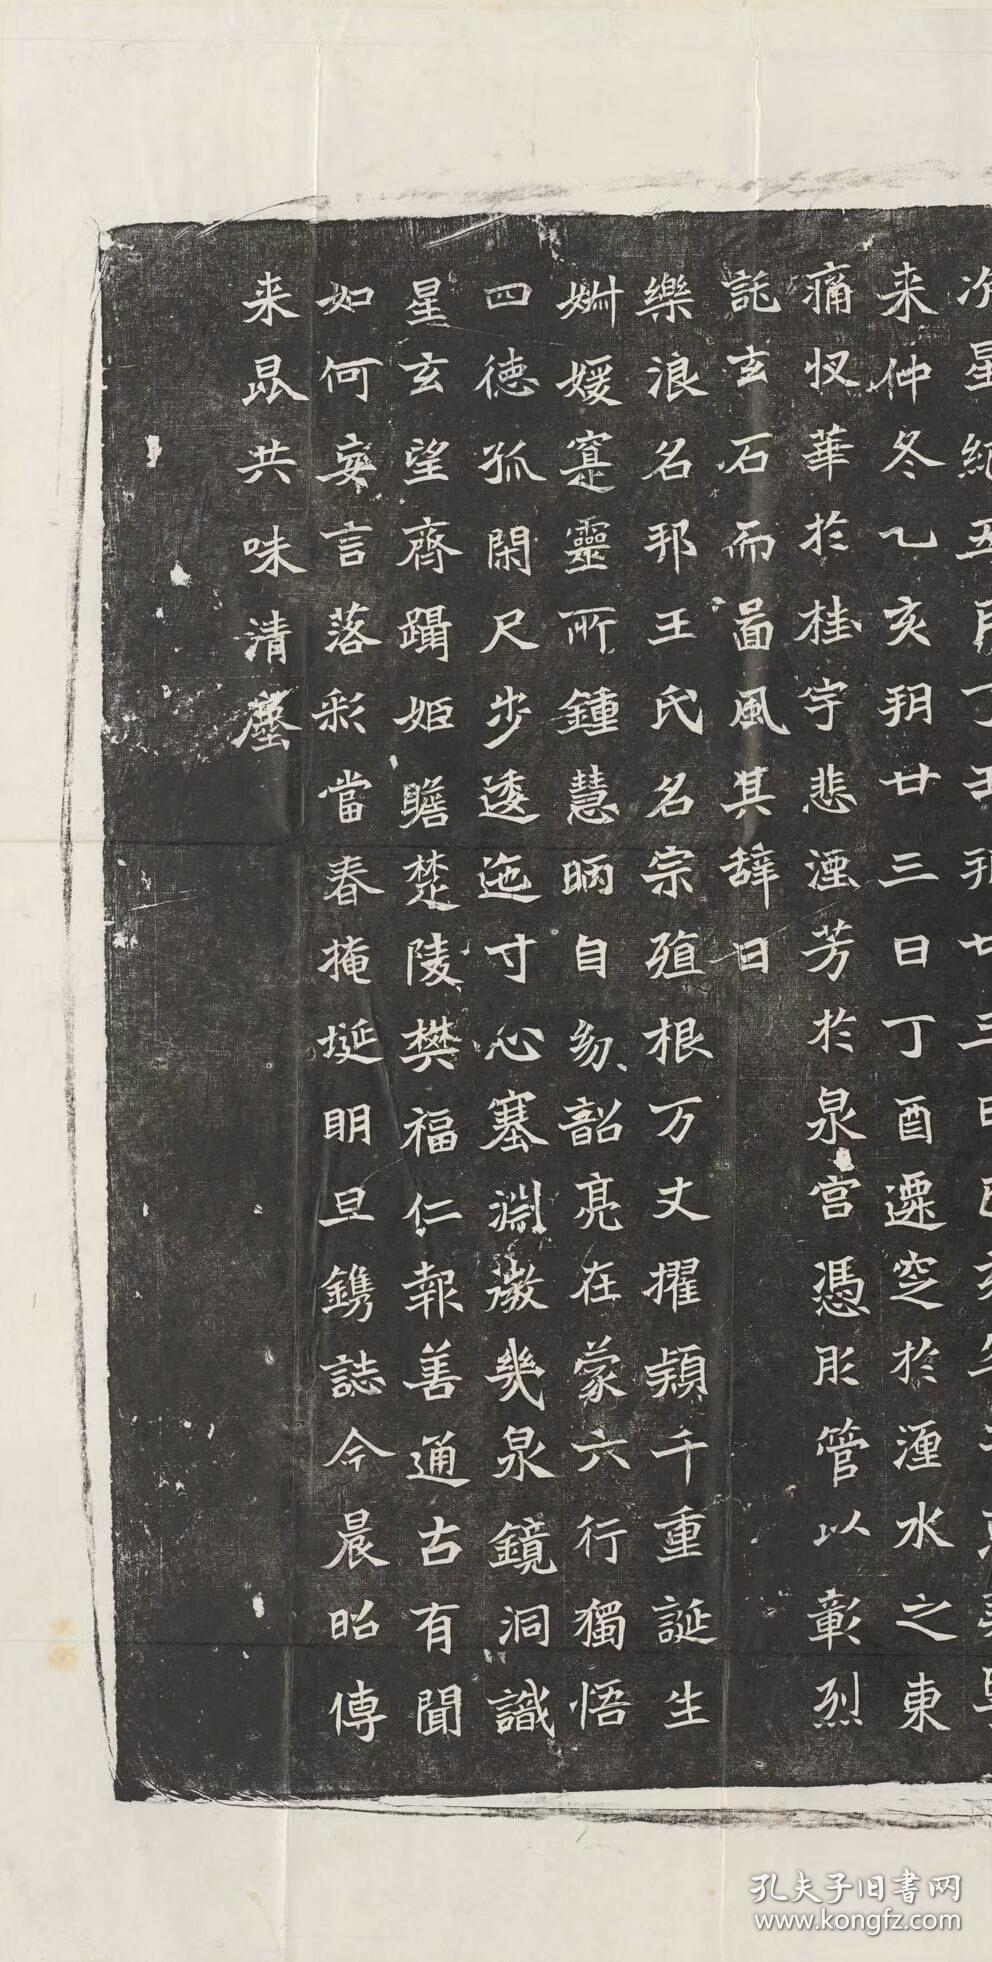 来仲冬乙亥玥廿三日丁酉遷窆於湹水之東
痛忮華於桂宇悲湮芳於泉宮憑肜管以彰烈
託玄石而啚風其辞曰
樂浪名邦王氏名宗殖根万丈擢頴千重誕生
姍媛寔靈所鍾慧昞自幼韶亮在蒙六行獨悟
四德孤閑尺步逶迤寸心塞淵澂幾泉鏡洞識
星玄望齊躡姬瞻楚陵樊福仁報善通古有聞
如何妄言落彩當春掩埏明旦鐫誌今晨昭傳
来昆共味清塵
孔夫子旧書网
www.kongfz.com